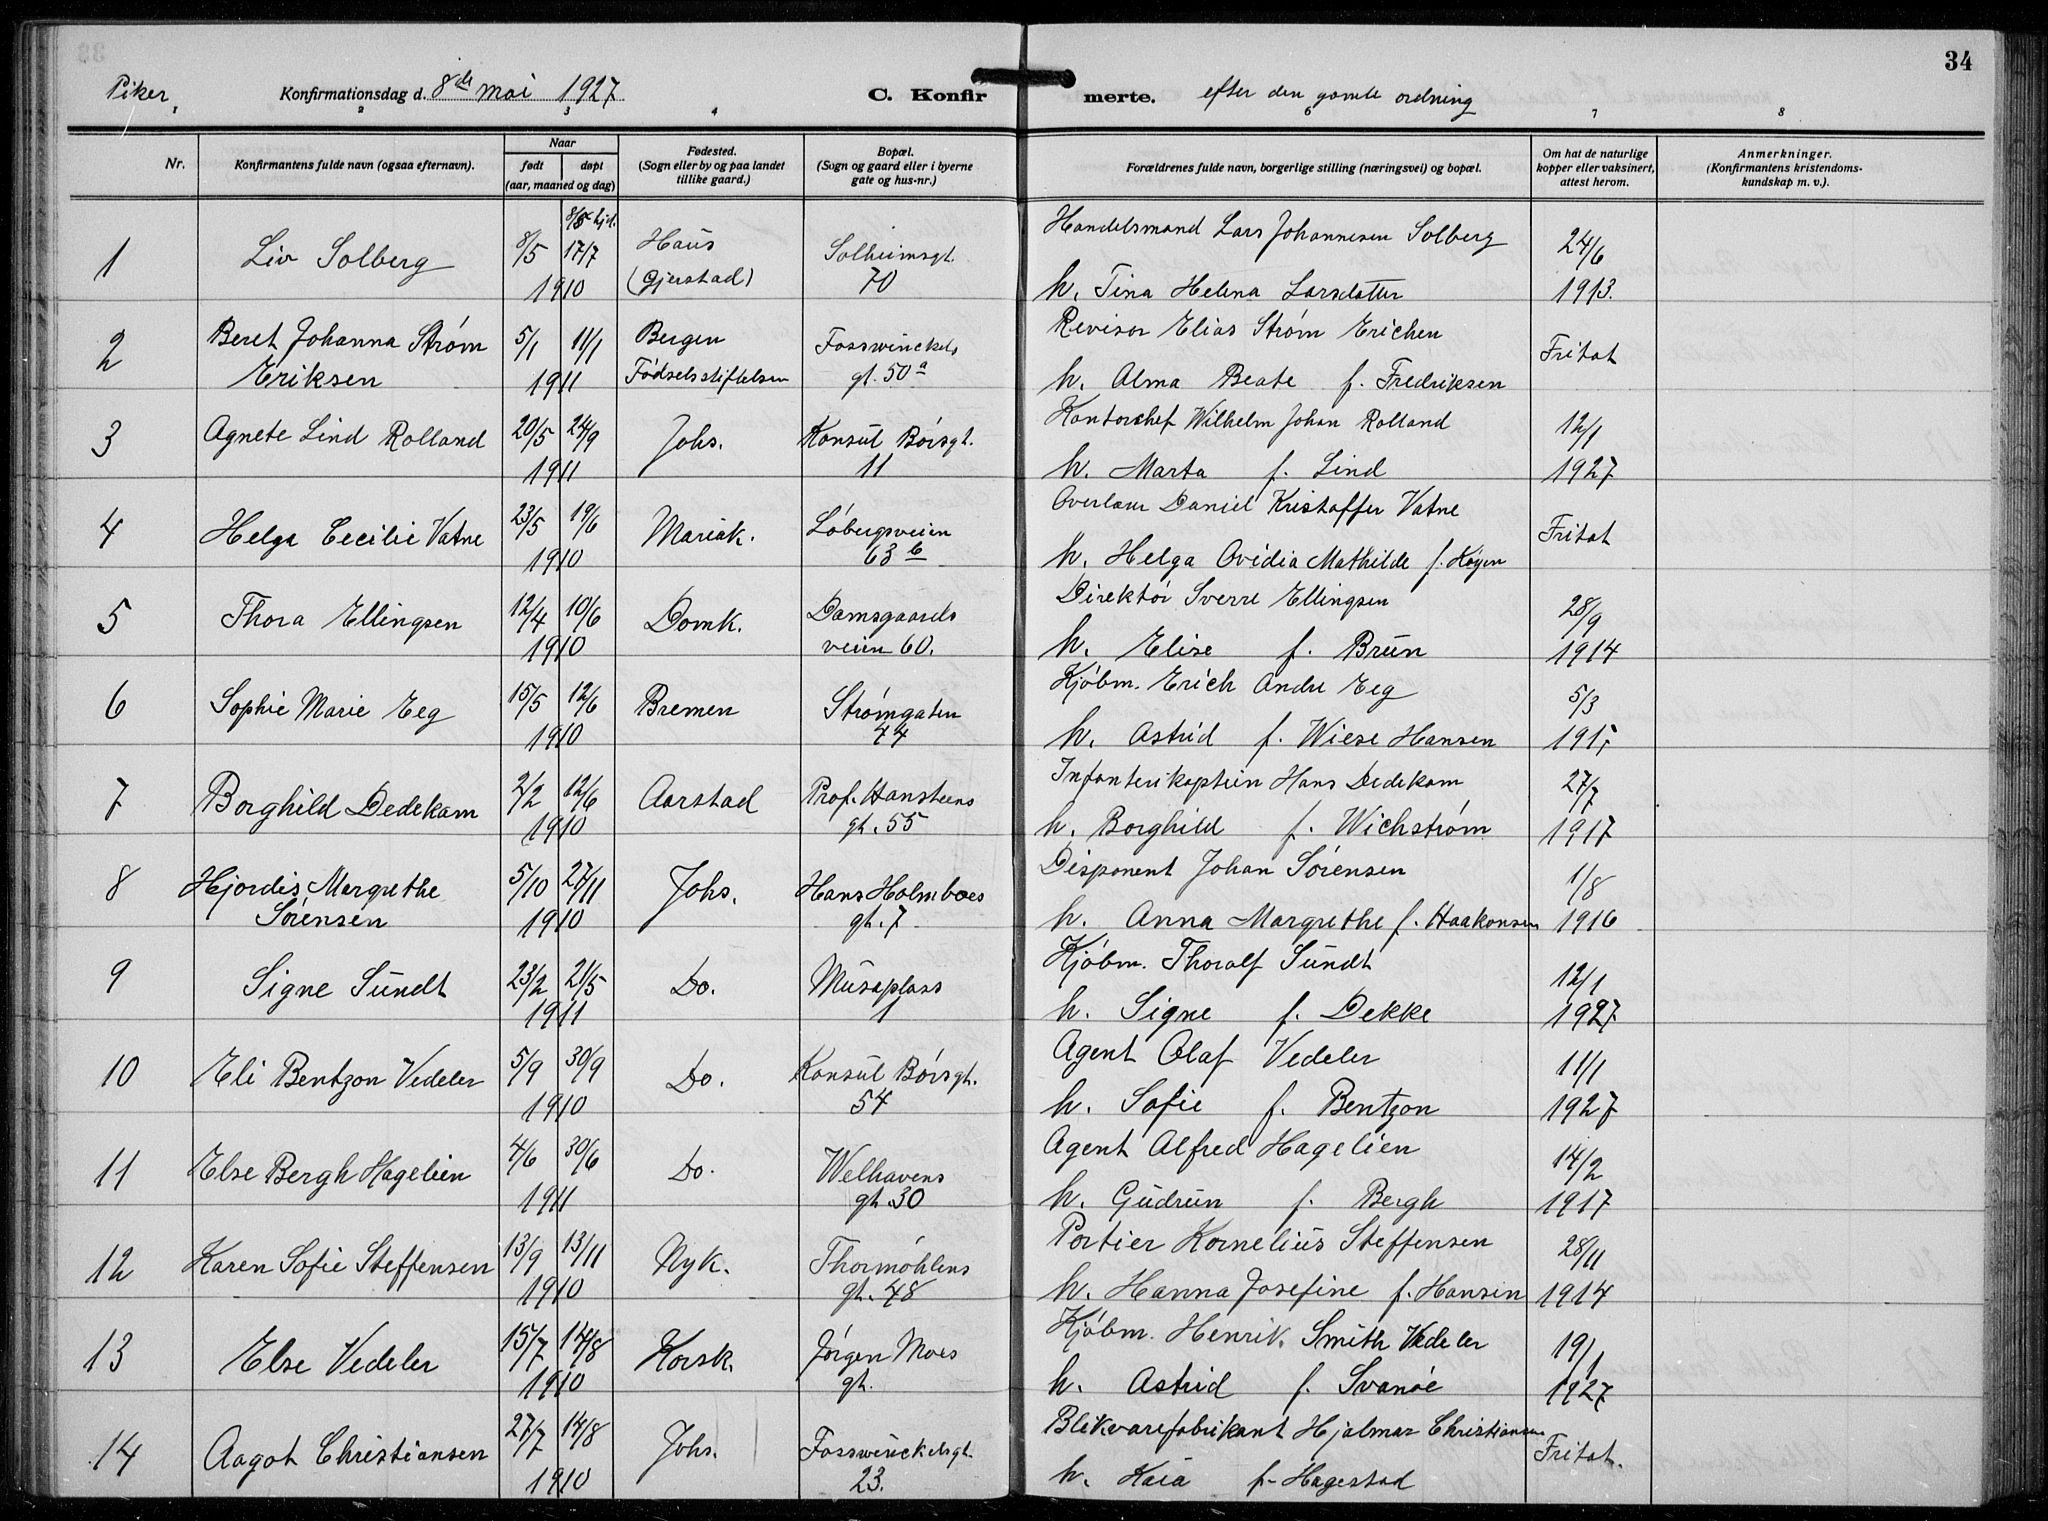 34
Piker
Konfirmationsdag d. 8de mai 1927
C. Konfirmerte. efter den gamle ordning
1 2 3 4 6 7 8
Nr.
Konfirmantens fulde navn (ogsaa efternavn).
Naar
født døpt
(aar, maaned og dag)
Fødested.
(Sogn eller by og paa landet
tillike gaard.)
Bopæl.
(Sogn og gaard eller i byerne
gate og hus-nr.)
Forældrenes fulde navn, borgerlige stilling (næringsvei) og bopæl.
Om hat de naturlige
kopper eller vaksinert,
attest herom.
Anmerkninger.
(Konfirmantens kristendoms-
kundskap m. v.).
8/5 hjd.
1 Liv Solberg 8/5 17/7 1910 Haus (Gjerstad) Solheimsgt. 70
Handelsmand Lars Johannesen Solberg 24/6
h. Tina Helena Larsdatter 1913.
2 Beret Johanna Strøm Eriksen 5/1 11/1 1911 Bergen Fødselsstiftelsen Fosswinckels gt. 50a
Revisor Elias Strøm Erichen Fritat
h. Alma Beate f. Fredriksen
3 Agnete Lind Rolland 20/5 24/9 1911 Johs. Konsul Børsgt. 11
Kontorchef Wilhelm Johan Rolland 12/1
h. Marta f. Lind 1927
4 Helga Cecilie Vatne 23/5 19/6 1910 Mariak. Løbergsveien 63 b
Overlær Daniel Kristoffer Vatne Fritat
h. Helga Ovidia Mathilde f. Køyen
5 Thora Ellingsen 12/4 10/6 1910 Domk. Damsgaards veien 60.
Direktør Sverre Ellingsen 28/9
h. Elise f. Brun 1914
6 Sophie Marie Eeg 15/5 12/6 1910 Bremen Strømgaten 44
Kjøbm. Erich Andre Eeg 5/3
h. Astrid f. Wiese Hansen 1915
7 Borghild Dedekam 2/2 12/6 1910 Aarstad Prof. Hansteens gt. 55
Infanterikaptein Hans Dedekam 27/7
h. Borghild f. Wichstrøm 1917
8 Hjordis Margrethe Sørensen 5/10 27/11 1910 Johs. Hans Holmboes gt. 7
Disponent Johan Sørensen 1/8
h. Anna Margrethe f. Haakonsen 1916
9 Signe Sundt 23/2 21/5 1911 Do. Musæplass 1
Kjøbm. Thoralf Sundt 12/1
h. Signe f. Dekke 1927
10 Eli Bentzon Vedeler 5/9 30/9 1910 Do. Konsul Børsgt. 54
Agent Olaf Vedeler 11/1
h. Sofie f. Bentzon 1927
11 Else Bergh Hagelien 4/6 30/6 1911 Do. Welhavens gt. 30
Agent Alfred Hagelien 14/2
h. Gudrun f. Bergh 1917
12 Karen Sofie Steffensen 13/9 13/11 1910 Nyk. Thormøhlens gt. 48
Portier Kornelius Steffensen 28/11
h. Hanna Josefine f. Hansen 1914
13 Else Vedeler 15/7 14/8 1910 Korsk. Jørgen Moes gt.
Kjøbm. Henrik Smith Vedeler 19/1
h. Astrid f. Svanøe 1927
14 Aagot Christiansen 27/7 14/8 1910 Johs. Fosswinckelsgt. 23.
Blikvarefabrikant Hjalmar Christiansen Fritat.
h. Kaia f. Hagestad